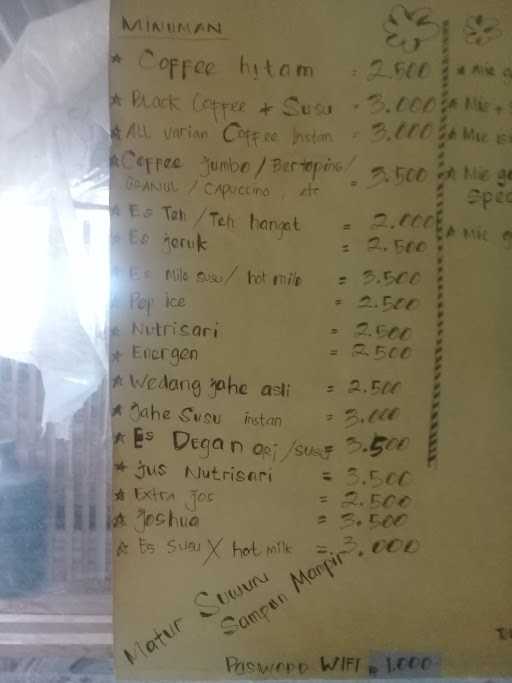 MINUMAN
Coffee hitam = 2.500
Black Coffee + Susu = 3.000
ALL varian Coffee Instan = 3.000
Coffee jumbo / Bertoping /
GRANUL / Capuccino, etc = 3.500
Es Teh / Teh hangat = 2.000
Es jeruk = 2.500
Es Milo susu / hot milo = 3.500
Pop ice = 2.500
Nutrisari = 2.500
Energen = 2.500
Wedang jahe asli = 2.500
Jahe Susu instan = 3.000
Es Degan ori / susu = 3.500
jus Nutrisari = 3.500
Extra jos = 2.500
Joshua = 3.500
Es Susu X hot milk = 3.000
Matur Suwun
Sampun Mampir
Password WIFI 1.000
Mie
Mie +
Mie
Mie go
Spec
Mie g